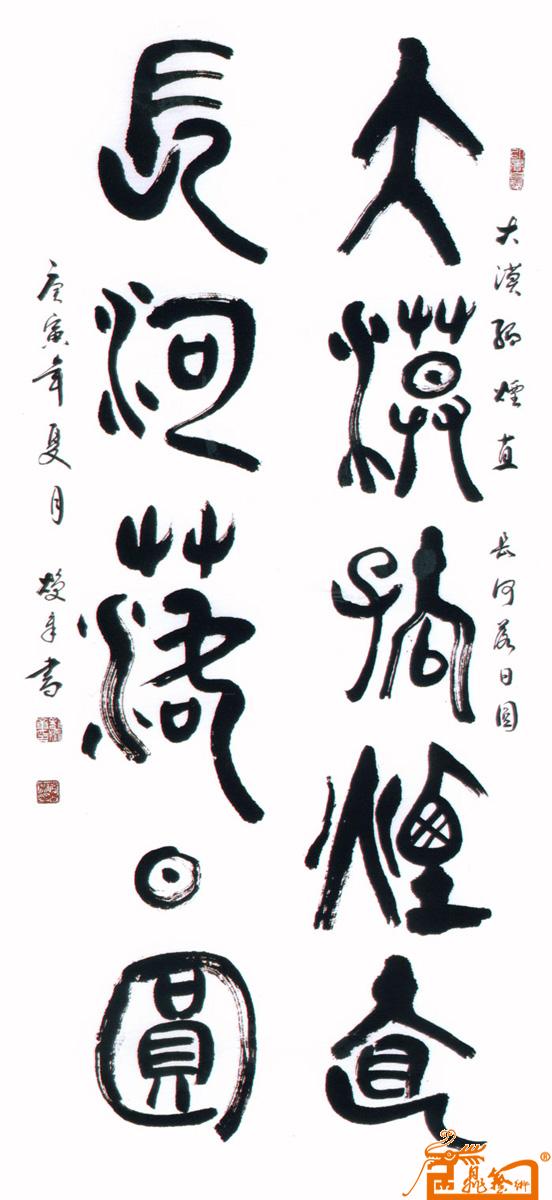 大漠孤煙直
長河落日圓
大漠孤煙直 長河落日圓
庚寅年夏月
書